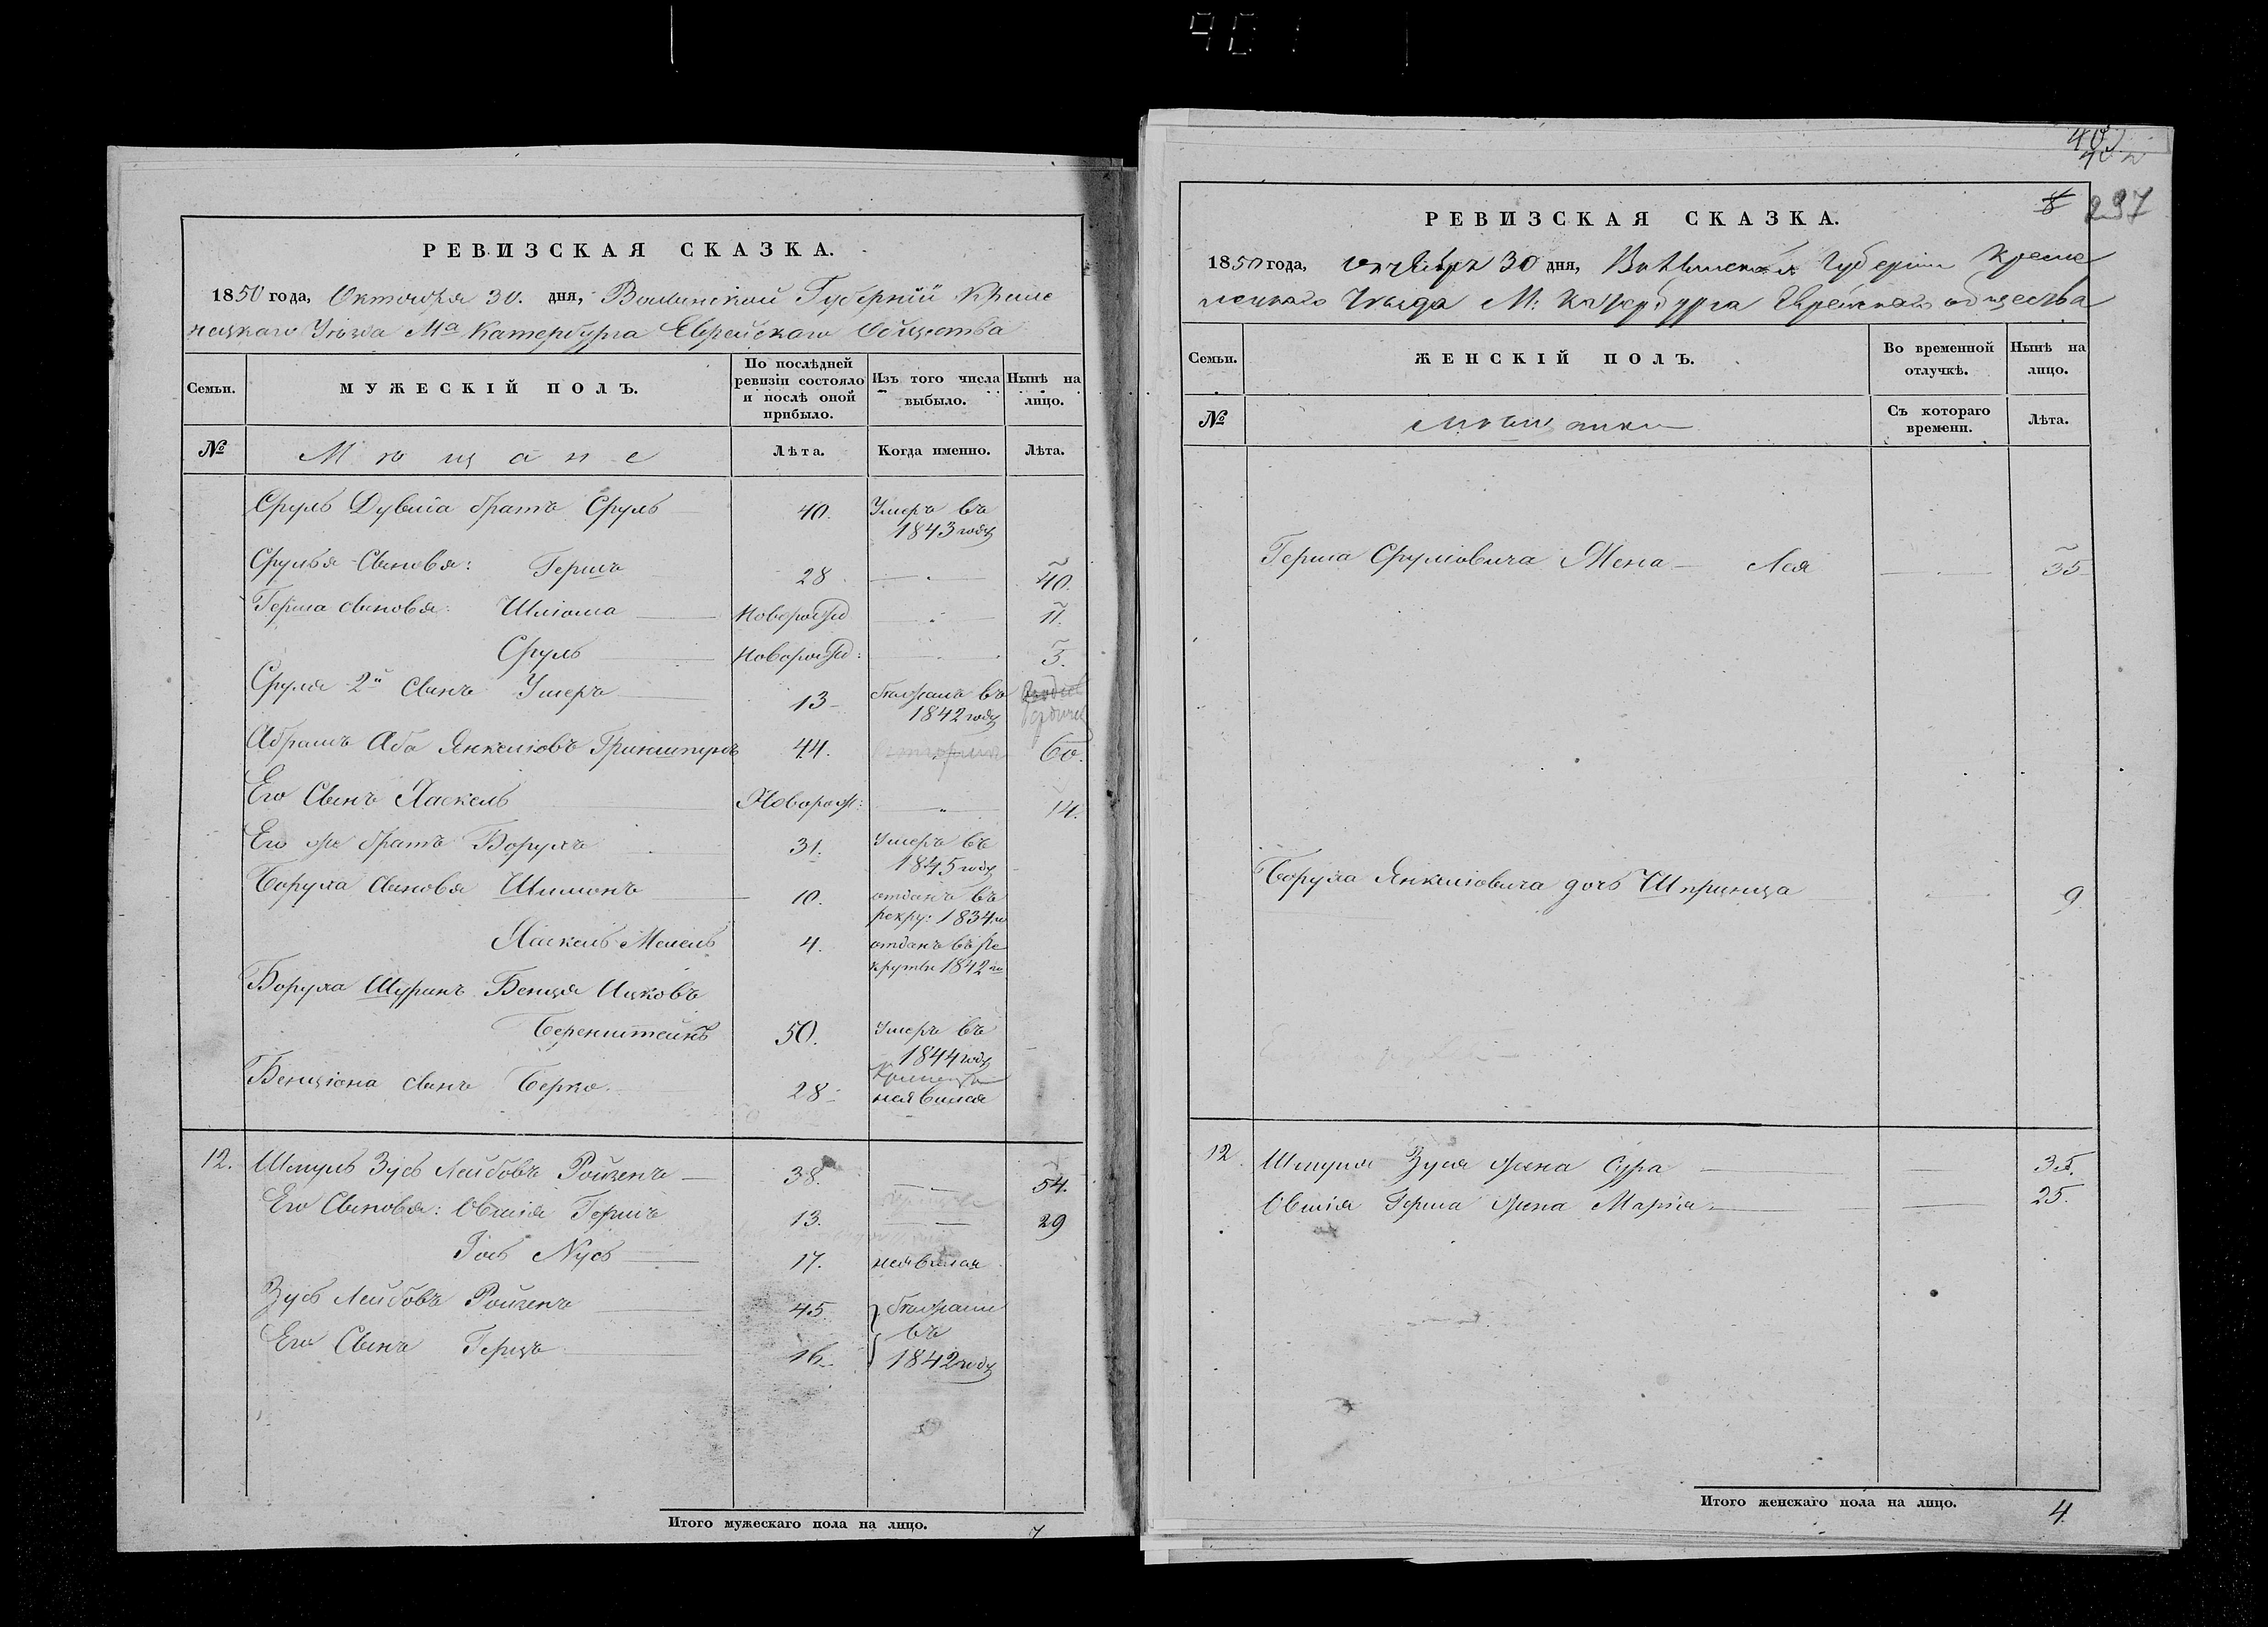 401
РЕВИЗСКАЯ СКАЗКА.
1850 года, Октября 30. дня, Волынской Губерніи Креме
нецкаго Уѣзда Мᵃ Катербурга Еврейскаго Общества
Семьи.
МУЖЕСКІЙ ПОЛЪ.
По послѣдней ревизіи состояло и послѣ оной прибыло.
Изъ того числа выбыло.
Нынѣ на лицо.
№
Мѣщане
Лѣта.
Когда именно.
Лѣта.
Сруль Дувида братъ Сруль 40. Умеръ въ
1843 году
Срулья Сыновья: Гершъ 28 40.
Герша сыновья: Шліома Новорожд 11.
Сруль Новорожд: 3.
Сруля 2й Сынъ Умеръ 13 въ
1842 году
Абрамъ Аба Янкеліовъ 44. 60.
Его Сынъ Хаскель Новорож: 14.
Его же братъ Борухъ 31. Умеръ въ
1845 году
Боруха Сыновья Шимонъ 10. отданъ въ
рекру: 1834 го
Хаскель Мелель 4. отданъ въ ре
круты 1842 го
Боруха Шуринъ Бенця Ицковъ
Беренштейнъ 50. Умеръ въ
1844 году
Бенціона сынъ Берко 28 неявился
12. Шмуль Зусь Лейбовъ Ройзенъ 38. 54.
Его Сыновья: Овшія Гершъ 13. 29
Іось Нусь 17. неявился
Зусь Лейбовъ Ройзенъ 45
въ
Его Сынъ Герцъ 16 1842 году
Итого мужескаго пола на лицо. 7
403
402
297
8
РЕВИЗСКАЯ СКАЗКА.
1850 года, октября 30 дня, Волынской Губерніи Креме
нецкаго Уѣзда М: Катербурга Еврейскаго общества
Семьи.
ЖЕНСКІЙ ПОЛЪ.
Во временной отлучкѣ.
Нынѣ на лицо.
№
мѣщанки
Съ котораго времени.
Лѣта.
Герша Сруліовича Жена Лея 35
Боруха Янкеліовича дочь Шпринца 9
12. Шмуля Зуся жена Сура 35.
Овшія Герша жена Марія 25.
Итого женскаго пола на лицо. 4